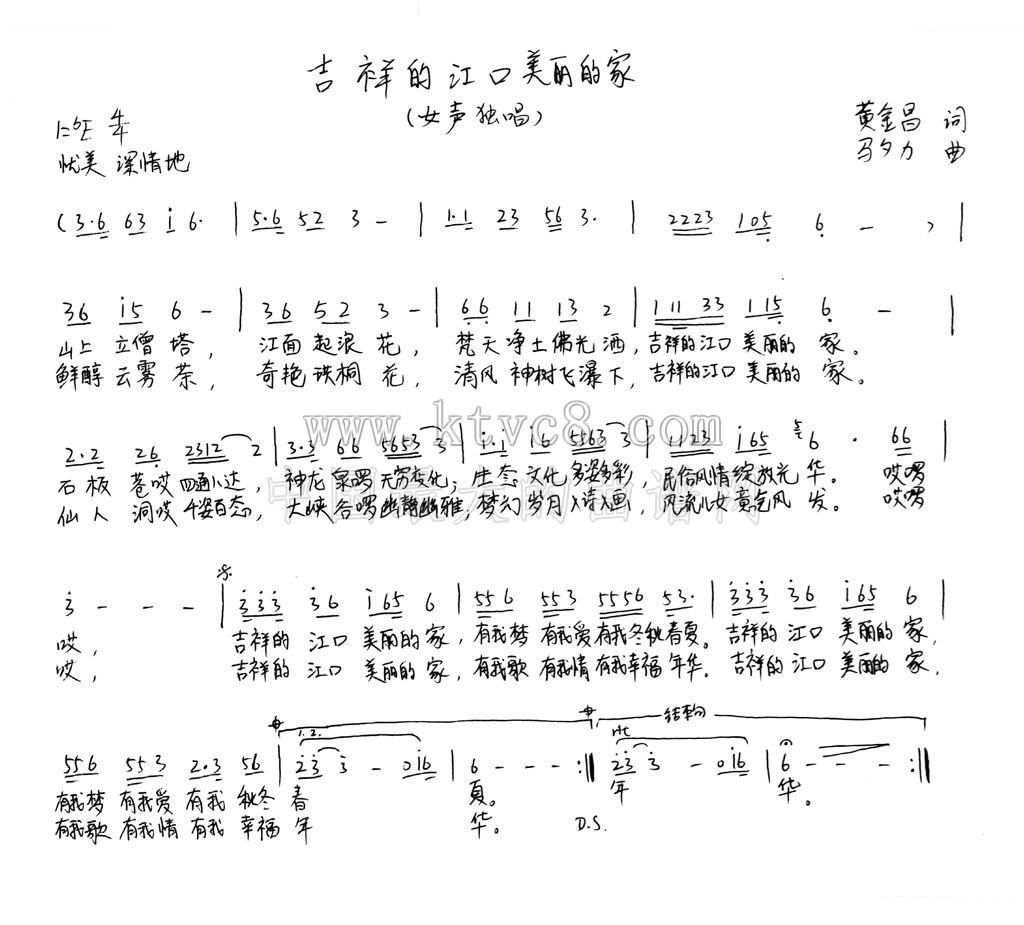 吉祥的江口美丽的家
(女声独唱)
1=bE 4/4
黄金昌 词
忧美 深情地
马夕力 曲
(3·6 63 i 6· | 5·6 52 3 - | 1·1 23 56 3· | 2223 105 6 - ) |
36 i5 6 - | 36 52 3 - | 66 11 13 2 | 111 33 115 6 - |
山上 立僧 塔, 江面 起浪 花, 梵天 净土佛光 洒, 吉祥的江口 美丽的 家。
鲜醇 云雾 茶, 奇艳 珙桐 花, 清风 神树飞瀑下, 吉祥的江口 美丽的 家。
www.ktvc8.com
2·2 26 2312 2 | 3·3 66 5653 3 | i·i i6 5563 3 | 1123 i65 5 6 · 66
石板 苍哎 四通八达, 神龙 泉啰 无穷变化; 生态 文化 多姿多彩, 民俗风情绽放光 华。 哎啰
仙人 洞哎 千姿百态, 大峡 谷啰 幽静幽雅; 梦幻 岁月 诗画, 风流儿女竟气风 发。 哎啰
3 - - - | 333 36 i65 6 | 556 553 5556 53· | 333 36 i65 6 |
哎, 吉祥的 江口 美丽的家, 有我梦 有我爱 有我冬秋春夏。 吉祥的 江口 美丽的 家,
哎, 吉祥的 江口 美丽的家, 有我歌 有我情 有我幸福 年华。 吉祥的 江口 美丽的 家,
结束句
1. 2. rit
556 553 2·3 56 | 23 3 - 016 | 6 - - - :‖ 23 3 - 016 | 6 - - - :‖
有我梦 有我爱 有我 秋冬 春 夏。 年 华。
有我歌 有我情 有我 幸福 年 华。 D.S.